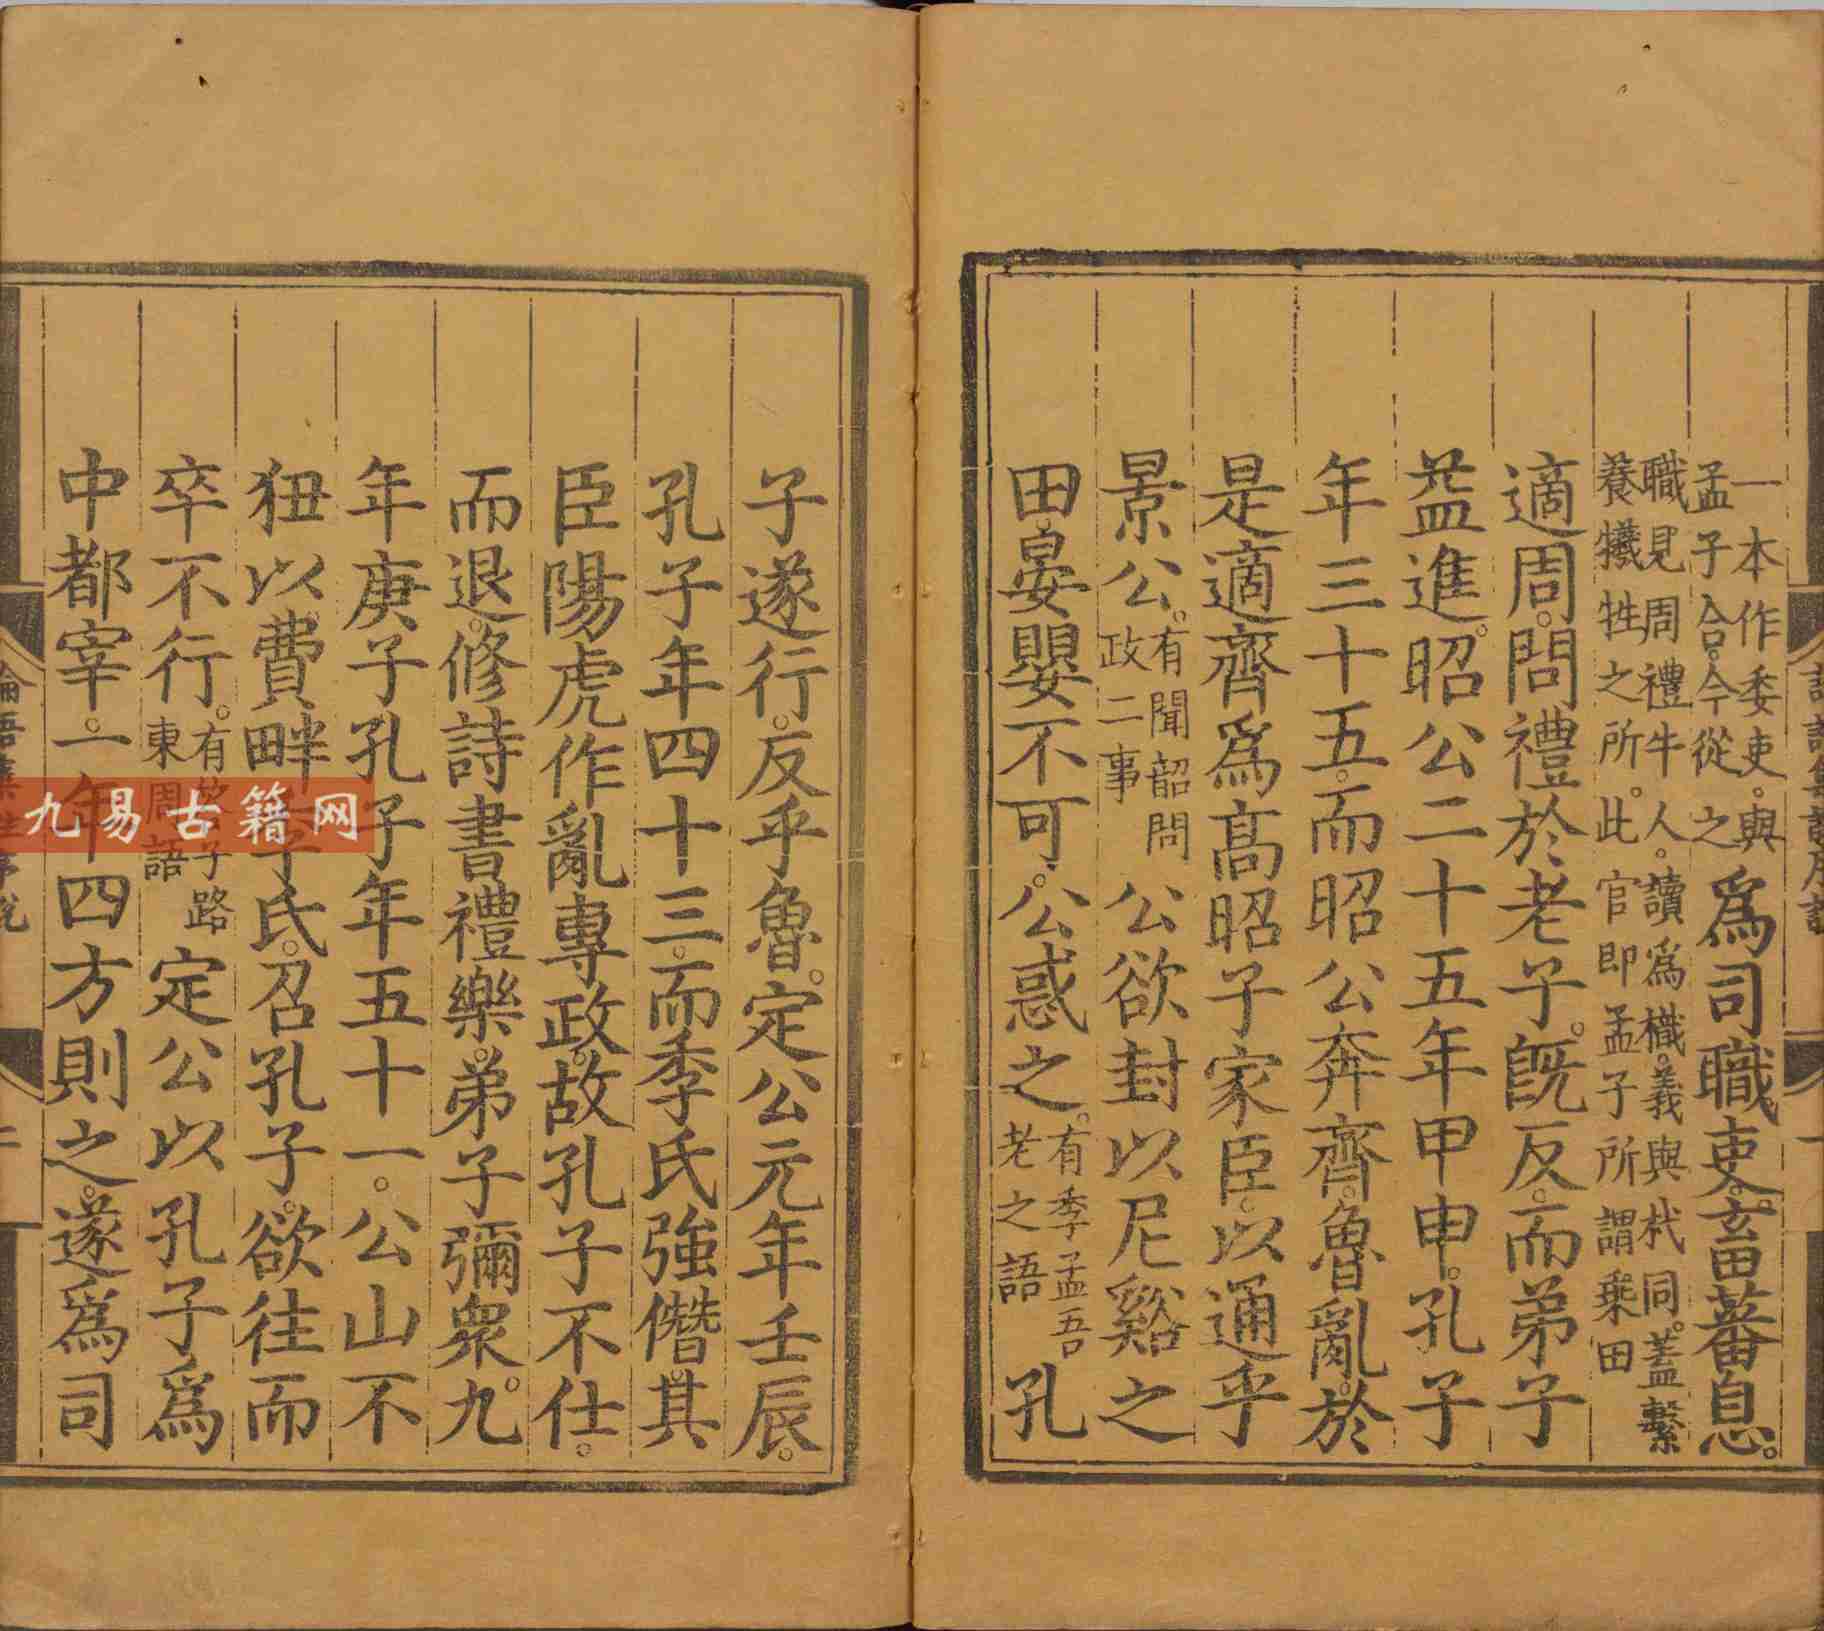 一本作委吏。與
孟子合。今從之
為司職吏。畜蕃息。
職見周禮牛人。讀為樴。義與杙同。蓋繫
養犧牲之所。此官即孟子所謂乘田
適周。問禮於老子。既反。而弟子
益進。昭公二十五年甲申。孔子
年三十五。而昭公奔齊。魯亂。於
是適齊為高昭子家臣。以通乎
景公。
有聞韶問
政二事
公欲封以尼谿之
田。晏嬰不可。公惑之。
有季孟吾
老之語
孔
子遂行。反乎魯。定公元年壬辰。
孔子年四十三。而季氏強僭。其
臣陽虎作亂專政。故孔子不仕。
而退。修詩書禮樂。弟子彌衆。九
年庚子孔子年五十一。公山不
狃以費畔季氏。召孔子。欲往而
卒不行。
有答子路
東周語
定公以孔子為
中都宰。一年四方則之。遂為司
九易古籍网